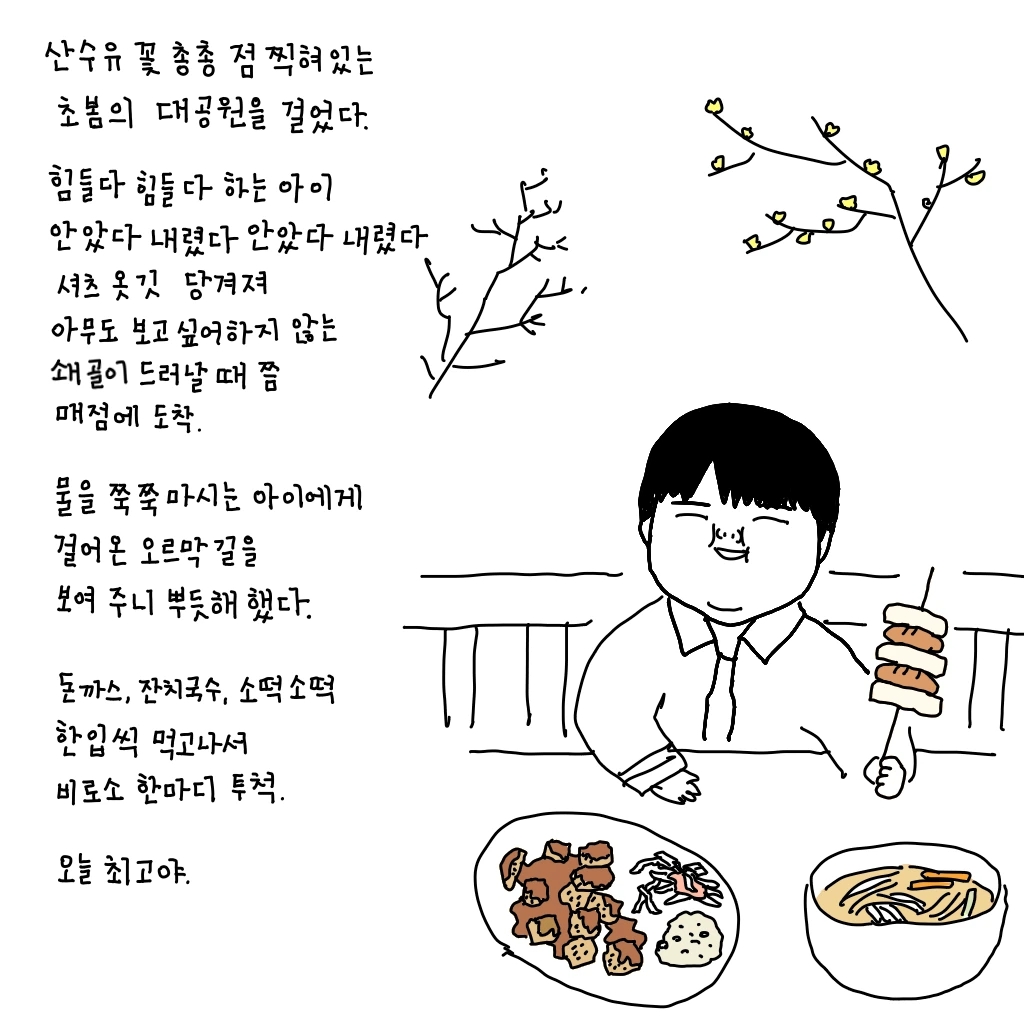 산수유 꽃 총총 점 찍혀있는
초봄의 대공원을 걸었다.
힘들다 힘들다 하는 아이
안았다 내렸다 안았다 내렸다
셔츠 옷깃 당겨져
아무도 보고싶어하지 않는
쇄골이 드러날 때 쯤
매점에 도착.
물을 쭉쭉 마시는 아이에게
걸어온 오르막길을
보여 주니 뿌듯해 했다.
돈까스, 잔치국수, 소떡소떡
한입씩 먹고나서
비로소 한마디 투척.
오늘 최고야.